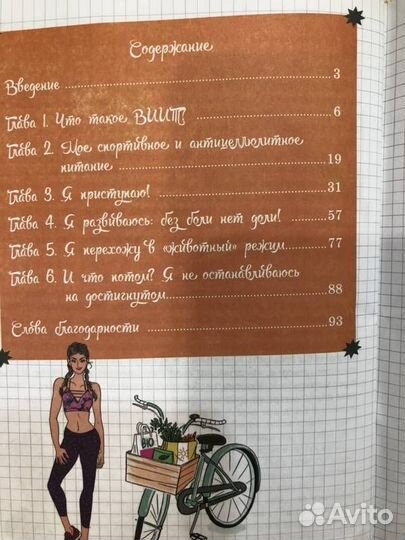 Содержание
Введение ........ 3
Глава 1. Что такое ВИИТ? ........ 6
Глава 2. Мое спортивное и антицеллюлитное
питание ........ 19
Глава 3. Я приступаю! ........ 31
Глава 4. Я развиваюсь: без боли нет доли! ........ 57
Глава 5. Я перехожу в «животный» режим ........ 77
Глава 6. И что потом? Я не останавливаюсь
на достигнутом ........ 88
Слова благодарности ........ 93
BIO
Avito